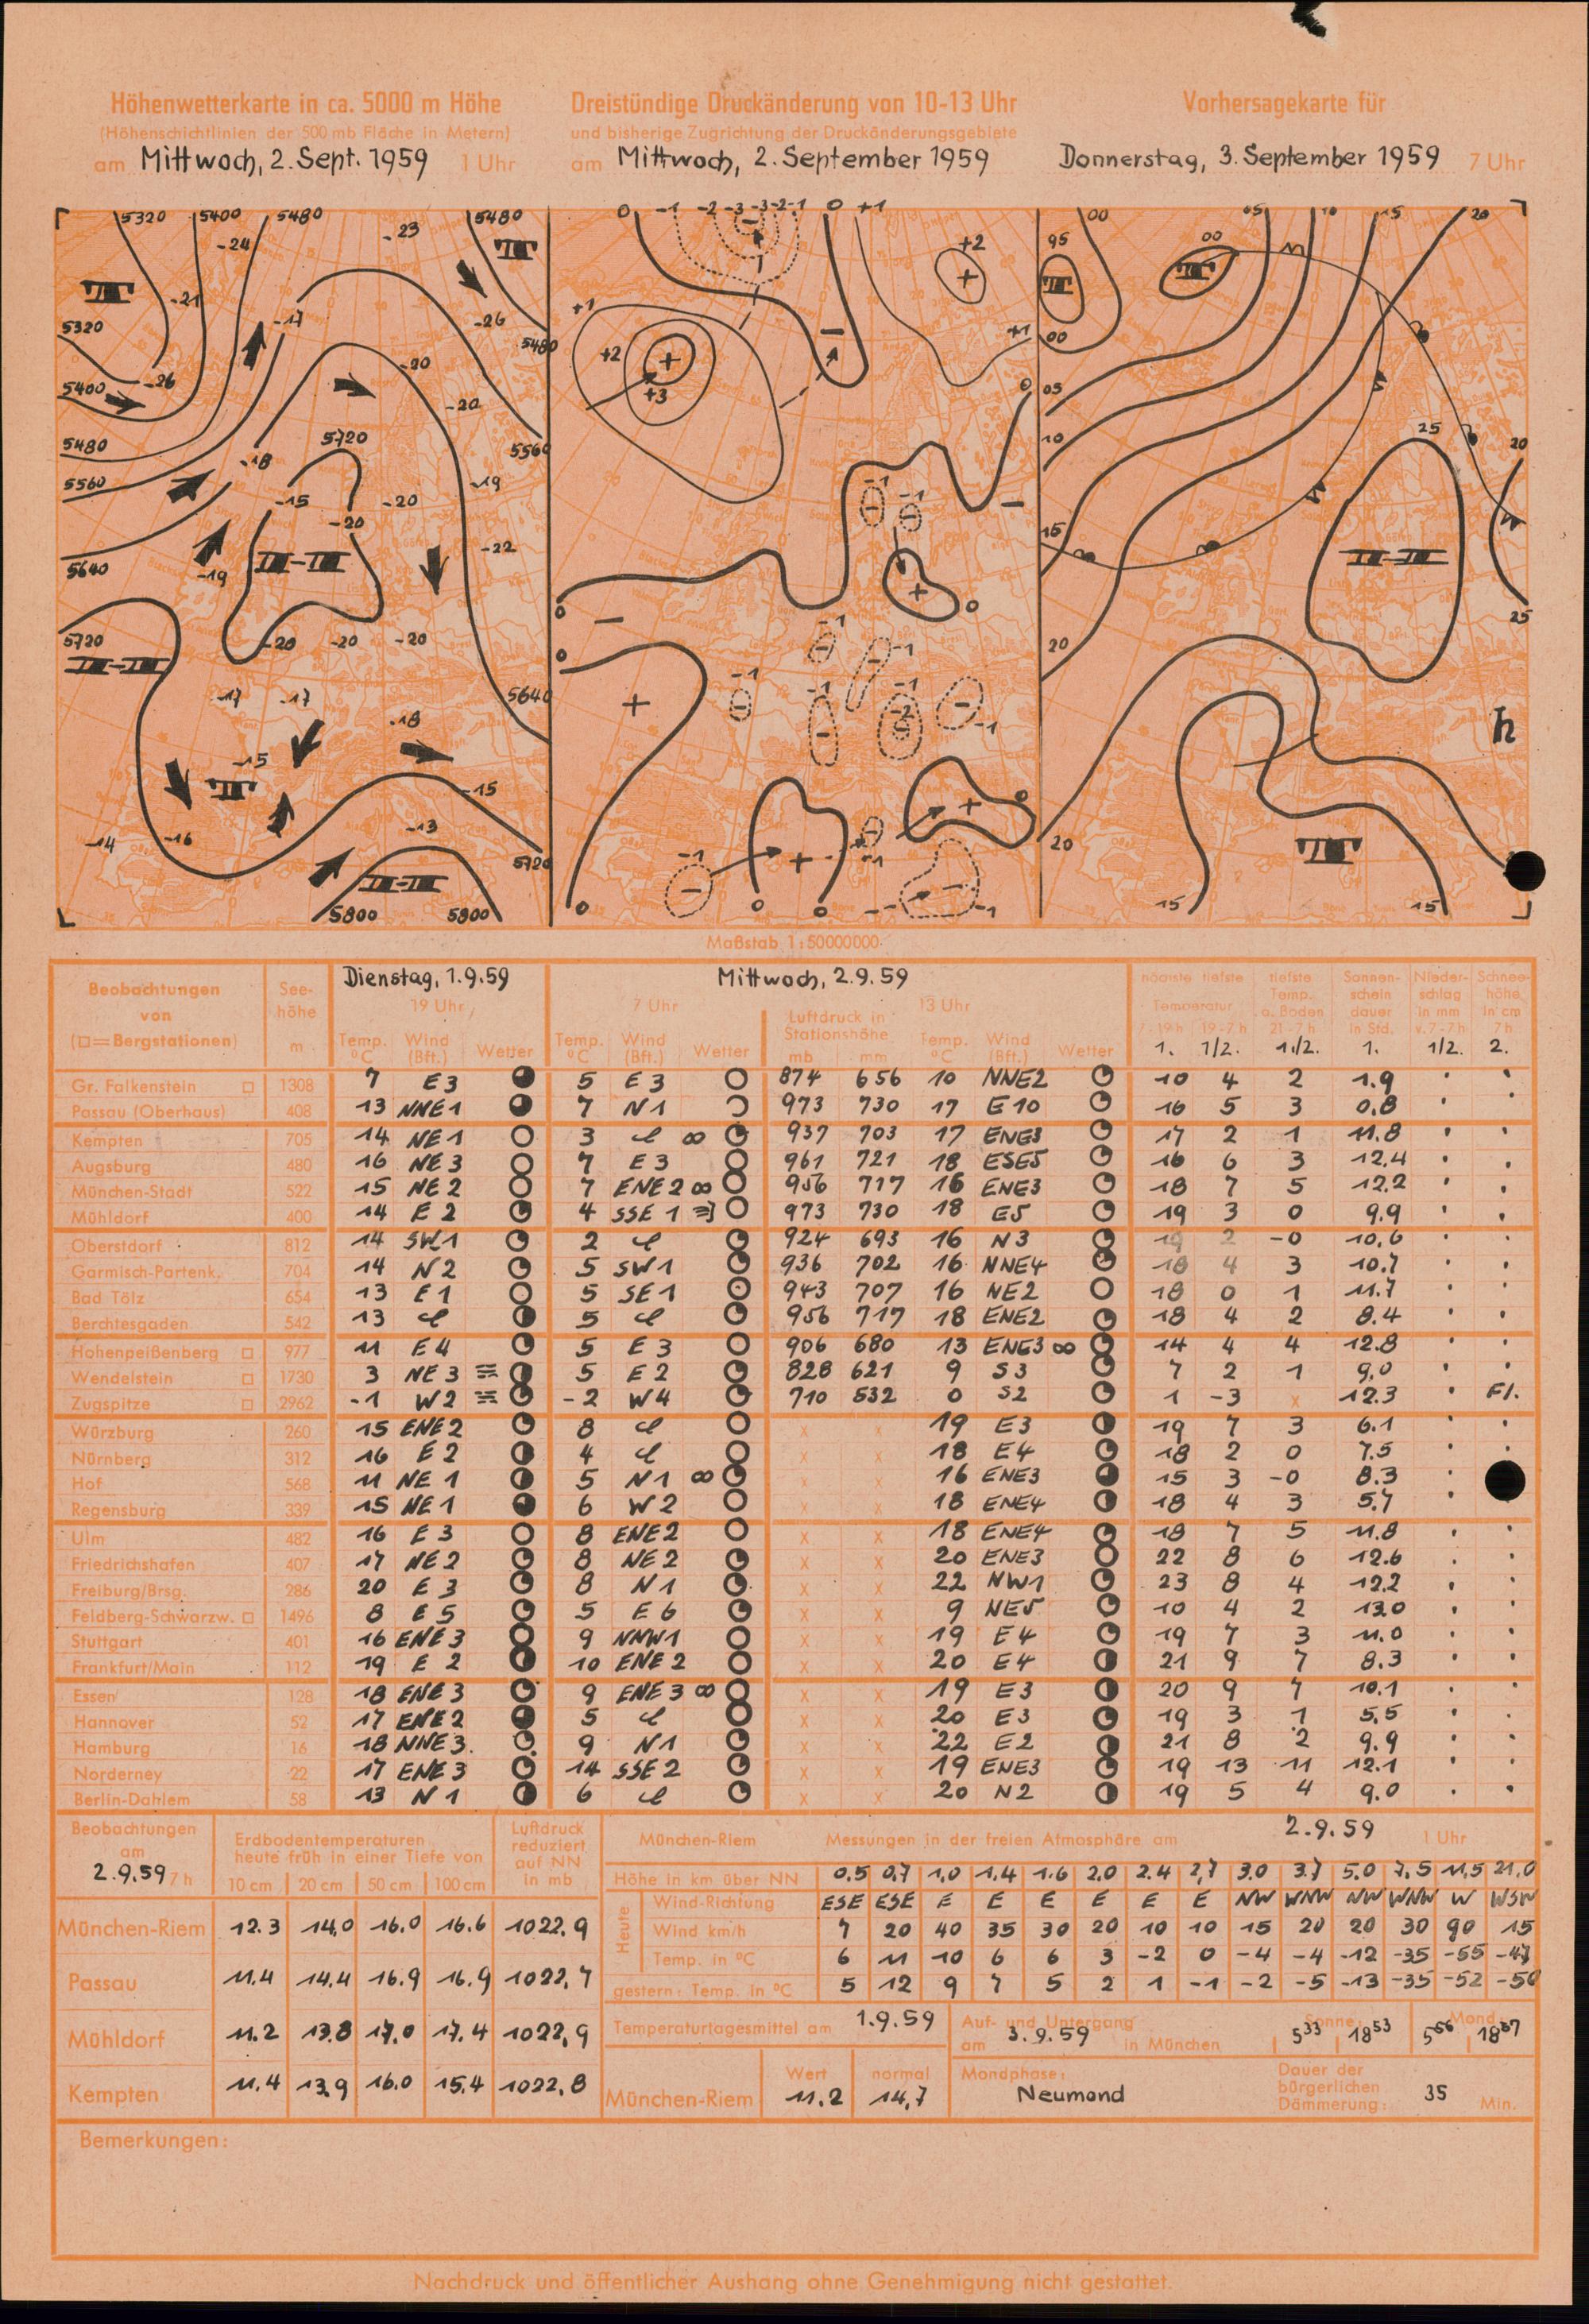 Höhenwetterkarte in ca. 5000 m Höhe
(Höhenschichtlinien der 500 mb Fläche in Metern)
am Mittwoch, 2. Sept. 1959 1 Uhr
Dreistündige Druckänderung von 10-13 Uhr
und bisherige Zugrichtung der Druckänderungsgebiete
am Mittwoch, 2. September 1959
Vorhersagekarte für
Donnerstag, 3. September 1959 7 Uhr
5320 5400 5480 5480
-24 -23
-21 -17 -26
5320 5480
-26 -20
5400 -20
5480 5720 5560
-18
5560 -15 -20 -19
-20
5640 -19 -22
5720 -20 -20 -20
-17 -17 5640
-18
-15 -15
-14 -16 -13
5720
5800 5800
0 -1 -2 -3 -3 -2 -1 0 +1
+2
+
+1 +1
+2 +
+3
−
0
-1 -1
−
+ 0
0
−
0 -1 -1
+ -1 -1 -1
-2 -1
+ 0
-1 + -1
0 0 0 -1
00 05 10 15 20
95 00
00
05
10 25 20
15
20 25
h
20
15 15
Maßstab 1:50000000
Beobachtungen von (□=Bergstationen)
Seehöhe m
Dienstag, 1.9.59
19 Uhr
Temp. °C Wind (Bft.) Wetter
Mittwoch, 2.9.59
7 Uhr
Temp. °C Wind (Bft.) Wetter
13 Uhr
Luftdruck in Stationshöhe mb mm Temp. °C Wind (Bft.) Wetter
höchste tiefste Temperatur
7-19h 19-7h
1. 1/2.
tiefste Temp. a. Boden 21-7h 1./2.
Sonnenscheindauer in Std. 1.
Niederschlag in mm v. 7-7h 1/2.
Schneehöhe in cm 7h 2.
Gr. Falkenstein □ 1308 7 E3 5 E3 874 656 10 NNE2 10 4 2 1.9 · ·
Passau (Oberhaus) 408 13 NNE1 7 N1 973 730 17 E10 16 5 3 0.8 · ·
Kempten 705 14 NE1 3 ∞ 937 703 17 ENE3 17 2 1 11.8 · ·
Augsburg 480 16 NE3 7 E3 961 721 18 ESE5 16 6 3 12.4 · ·
München-Stadt 522 15 NE2 7 ENE2 ∞ 956 717 16 ENE3 18 7 5 12.2 · ·
Mühldorf 400 14 E2 4 SSE1 973 730 18 E5 19 3 0 9.9 · ·
Oberstdorf 812 14 SW1 2 924 693 16 N3 19 2 -0 10.6 · ·
Garmisch-Partenk. 704 14 N2 5 SW1 936 702 16 NNE4 18 4 3 10.7 · ·
Bad Tölz 654 13 E1 5 SE1 943 707 16 NE2 18 0 1 11.7 · ·
Berchtesgaden 542 13 5 956 717 18 ENE2 18 4 2 8.4 · ·
Hohenpeißenberg □ 977 11 E4 5 E3 906 680 13 ENE3 ∞ 14 4 4 12.8 · ·
Wendelstein □ 1730 3 NE3 5 E2 828 621 9 S3 7 2 1 9.0 · ·
Zugspitze □ 2962 -1 W2 -2 W4 710 532 0 S2 1 -3 x 12.3 · Fl.
Würzburg 260 15 ENE2 8 x x 19 E3 19 7 3 6.1 · ·
Nürnberg 312 16 E2 4 x x 18 E4 18 2 0 7.5 · ·
Hof 568 11 NE1 5 N1 ∞ x x 16 ENE3 15 3 -0 8.3 ·
Regensburg 339 15 NE1 6 W2 x x 18 ENE4 18 4 3 5.7 · ·
Ulm 482 16 E3 8 ENE2 x x 18 ENE4 18 7 5 11.8 · ·
Friedrichshafen 407 17 NE2 8 NE2 x x 20 ENE3 22 8 6 12.6 · ·
Freiburg/Brsg. 286 20 E3 8 N1 x x 22 NW1 23 8 4 12.2 · ·
Feldberg-Schwarzw. □ 1496 8 E5 5 E6 x x 9 NE5 10 4 2 13.0 · ·
Stuttgart 401 16 ENE3 9 NNW1 x x 19 E4 19 7 3 11.0 · ·
Frankfurt/Main 112 19 E2 10 ENE2 x x 20 E4 21 9 7 8.3 · ·
Essen 128 18 ENE3 9 ENE3 ∞ x x 19 E3 20 9 7 10.1 · ·
Hannover 52 17 ENE2 5 x x 20 E3 19 3 1 5.5 · ·
Hamburg 16 18 NNE3 9 N1 x x 22 E2 21 8 2 9.9 · ·
Norderney 22 17 ENE3 14 SSE2 x x 19 ENE3 19 13 11 12.1 · ·
Berlin-Dahlem 58 13 N1 6 x x 20 N2 19 5 4 9.0 · ·
Beobachtungen am 2.9.59 7h
Erdbodentemperaturen heute früh in einer Tiefe von
10 cm 20 cm 50 cm 100 cm
Luftdruck reduziert auf NN in mb
München-Riem 12.3 14.0 16.0 16.6 1022.9
Passau 11.4 14.4 16.9 16.9 1022.7
Mühldorf 11.2 13.8 17.0 17.4 1022.9
Kempten 11.4 13.9 16.0 15.4 1022.8
München-Riem Messungen in der freien Atmosphäre am 2.9.59 1 Uhr
Höhe in km über NN 0.5 0.7 1.0 1.4 1.6 2.0 2.4 2.7 3.0 3.7 5.0 7.5 11.5 21.0
Heute
Wind-Richtung ESE ESE E E E E E E NW WNW NW WNW W WSW
Wind km/h 7 20 40 35 30 20 10 10 15 20 20 30 90 15
Temp. in °C 6 11 10 6 6 3 -2 0 -4 -4 -12 -35 -55 -47
gestern: Temp. in °C 5 12 9 7 5 2 1 -1 -2 -5 -13 -35 -52 -50
Temperaturtagesmittel am 1.9.59
Wert normal
München-Riem 11.2 14,7
Auf- und Untergang am 3.9.59 in München
Sonne: 5 33 18 53
Mond: 5 56 18 37
Mondphase: Neumond
Dauer der bürgerlichen Dämmerung: 35 Min.
Bemerkungen:
Nachdruck und öffentlicher Aushang ohne Genehmigung nicht gestattet.